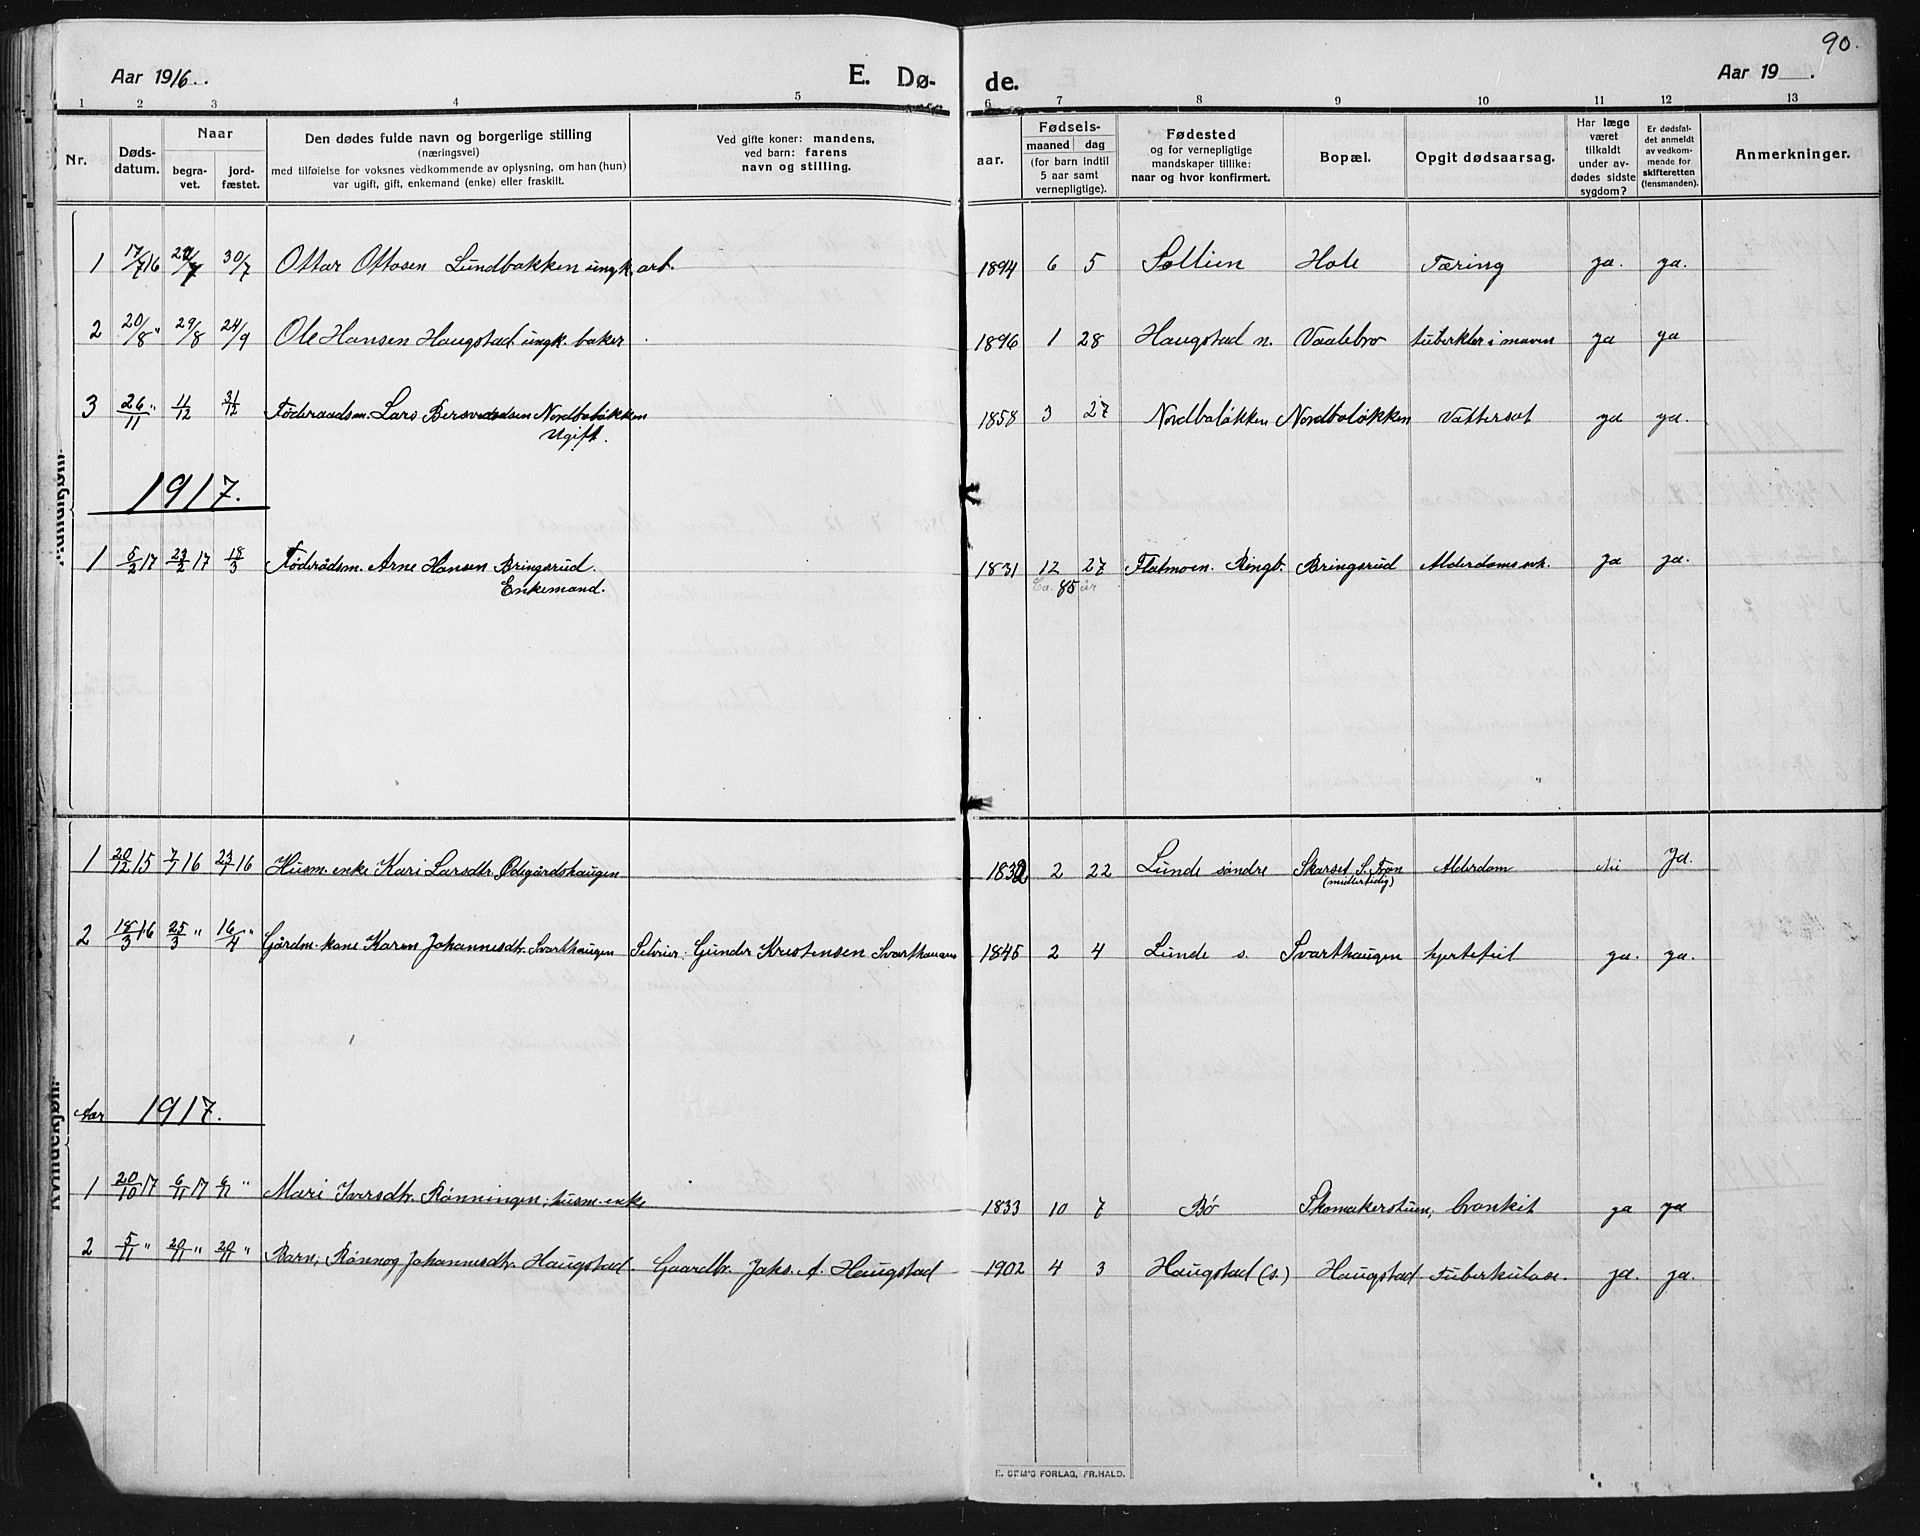 90.
Aar 1916. E. Dø- de. Aar 19 .
1 2 3 4 5 6 7 8 9 10 11 12 13
Nr. Døds-datum. Naar begra-vet. jord-fæstet. Den dødes fulde navn og borgerlige stilling (næringsvei) med tilføielse for voksnes vedkommende av oplysning, om han (hun) var ugift, gift, enkemand (enke) eller fraskilt. Ved gifte koner: mandens, ved barn: farens navn og stilling. aar. Fødsels- maaned dag (for barn indtil 5 aar samt vernepligtige). Fødested og for vernepligtige mandskaper tillike: naar og hvor konfirmert. Bopæl. Opgit dødsaarsag. Har læge været tilkaldt under av-dødes sidste sygdom? Er dødsfal-det anmeldt av vedkom-mende for skifteretten (lensmanden). Anmerkninger.
1 17/7 16 30/7 Ottar Ottosen Lundbakken ungk. arb. 1894 6 5 Sollien Hole Tæring ja. ja.
2 20/8 " 29/8 24/9 Ole Hansen Haugstad ungk. baker 1896 1 28 Haugstad n. Vaalebro tuberkler i maven ja ja
3 26/11 " 11/12 31/12 Føderaadsm. Lars Bersvendsen Nordbaløkken 1858 3 27 Nordbaløkken Nordbaløkken Vattersot ja ja.
Ugift.
1917.
1 5/2 17 23/2 17 18/3 Føderådsm. Arne Hansen Bringsrud. 1831 12 27 Flatmoen. Ringb. Bringsrud Alderdomssvk. ja ja.
Enkemand. Ca. 85 år
Mandkjøn.
1 20/12 15 7/1 16 23/1 16 Husm. enke Kari Larsdtr. Ødegårdshaugen 1832 2 22 Lunde søndre Skarset S. Fron Alderdom Nei Ja.
(midlertidig)
2 18/3 16 25/3 " 16/4 " Gårdm. kone Karen Johannesdtr. Svarthaugen Selveier. Gunder Kristensen Svarthaugen 1845 2 4 Lunde s. Svarthaugen hjertefeil ja. ja.
Aar 1917.
Kvindekjøn.
1 20/10 17 6/11 17 6/11 " Mari Iversdtr. Rønningen, husm. enke 1833 10 7 Bø Skomakerstuen, bronkit ja ja
2 5/11 " 20/11 " 20/11 " Barn, Rønnog Johannesdtr. Haugstad Gaardbr. Johs. A. Haugstad 1902 4 3 Haugstad (s.) Haugstad Tuberkulose. ja. ja.
E. SEM'S FORLAG, FR.HALD.